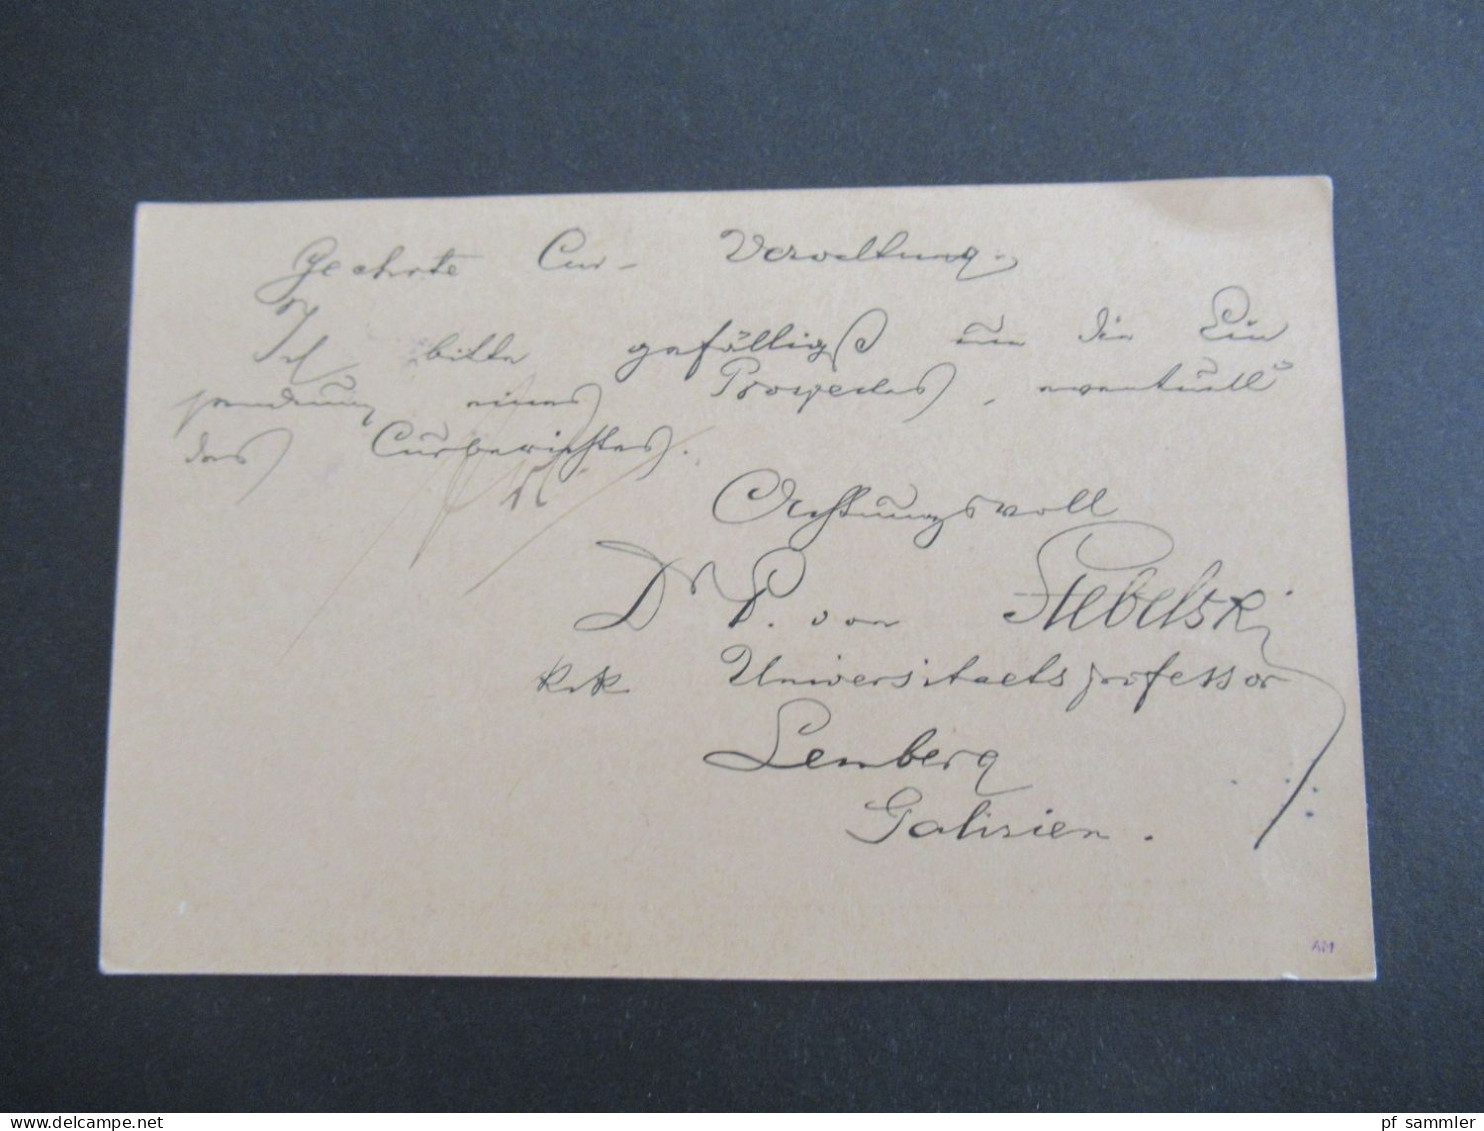 Geehrte Cur-Verwaltung.
Ich bitte gefälligst um die Ein
sendung eines Prospectes, eventuell
des Curberichtes.
Achtungsvoll
Dr P. von Stebelski
k. k. Universitaetsprofessor
Lemberg
Galizien.
AM
pf sammler